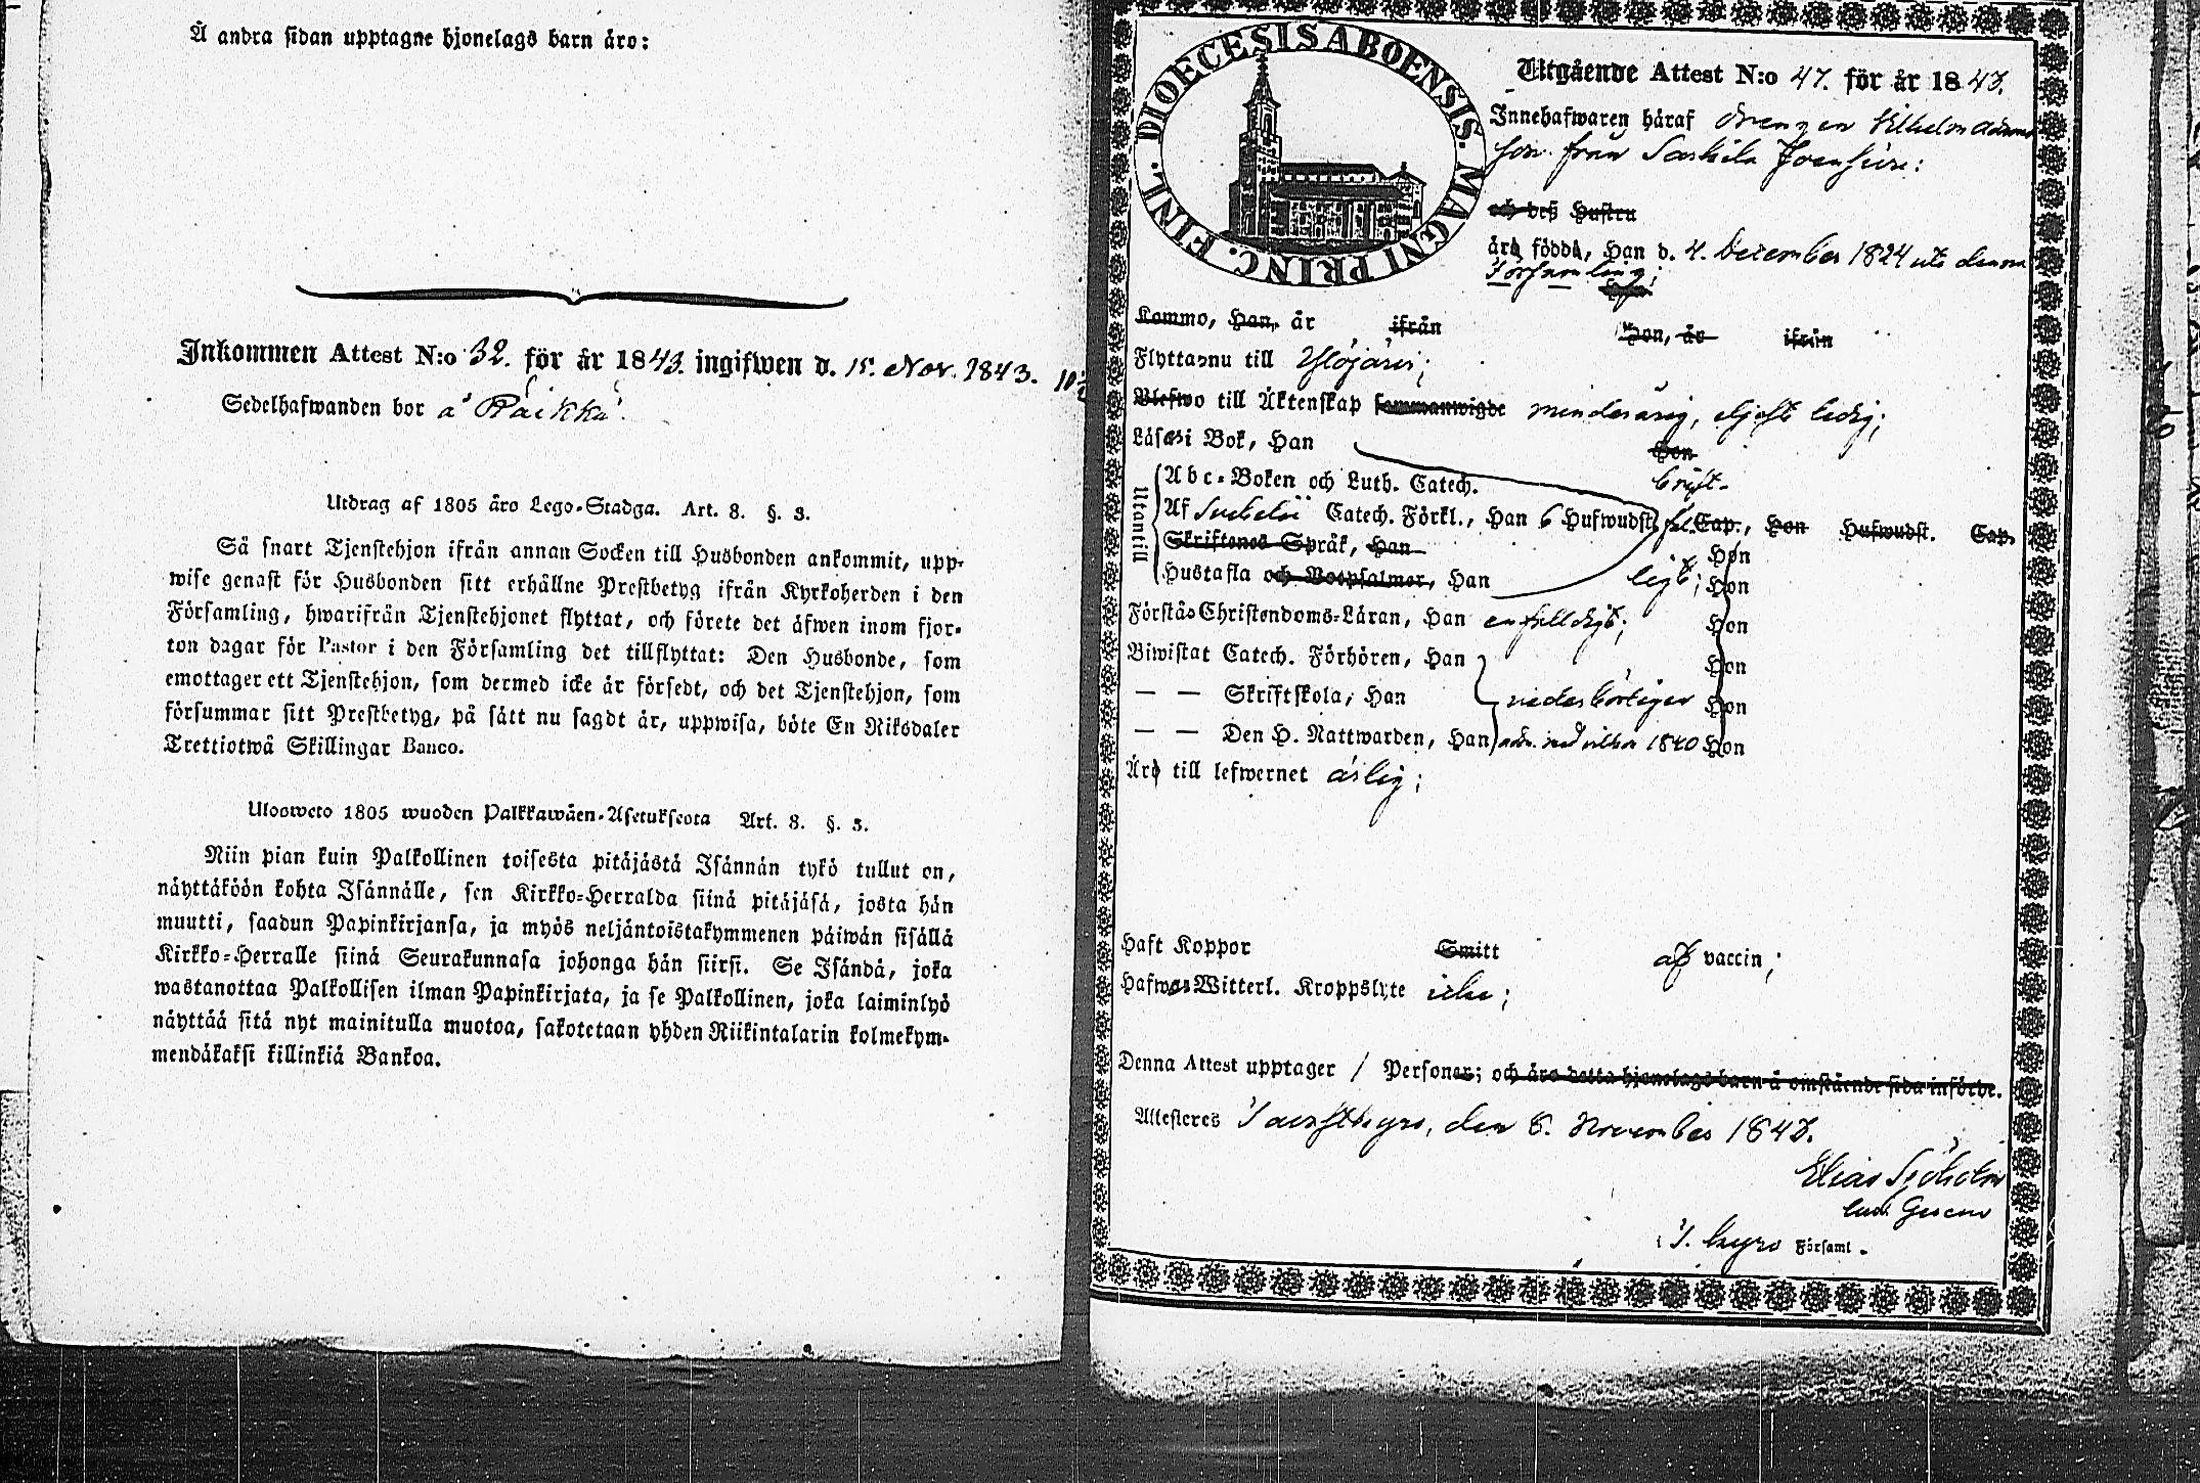 Å andra sidan upptagne hjonelags barn äro:
Inkommen Attest N:o 32. för år 1843. ingifwen d. 15. Nov. 1843.
Sedelhafwanden bor å Räikkä.
Utdrag af 1805 åro Lego-Stadga. Art. 8. §. 3.
Så snart Tjenstehjon ifrån annan Socken till Husbonden ankommit, upp-
wise genast för Husbonden sitt erhållne Prestbetyg ifrån Kyrkoherden i den
Församling, hwarifrån Tjenstehjonet flyttat, och förete det äfwen inom fjor-
ton dagar för Pastor i den Församling det tillflyttat: Den Husbonde, som
emottager ett Tjenstehjon, som dermed icke är försedt, och det Tjenstehjon, som
försummar sitt Prestbetyg, på sätt nu sagdt är, uppwisa, böte En Riksdaler
Trettiotwå Skillingar Banco.
Ulosweto 1805 wuoden Palkkawäen-Asetuksesta Art. 8. §. 3.
Niin pian kuin Palkollinen toisesta pitäjästä Isännän tykö tullut on,
näyttäköön kohta Isännälle, sen Kirkko-Herralda siinä pitäjäsä, josta hän
muutti, saadun Papinkirjansa, ja myös neljäntoistakymmenen päiwän sisällä
Kirkko-Herralle siinä Seurakunnasa johonga hän siirsi. Se Isändä, joka
wastanottaa Palkollisen ilman Papinkirjata, ja se Palkollinen, joka laiminlyö
näyttää sitä nyt mainitulla muotoa, sakotetaan yhden Riikintalarin kolmekym-
mendäkaksi killinkiä Bankoa.
DIOECESIS ABOENSIS. MAGNI PRINC. FINL.
Utgående Attest N:o 47. för år 1843.
Innehafwaren häraf drengen Vilhelm Adams
son från Sarkila Joensuu:
och deß Hustru
äro födda, Han d. 4. December 1824 uti denna
Församling;
Hon
Kommo, Han, år ifrån Hon, år ifrån
Flytta nu till Ylöjärvi;
Blefwo till Äktenskap sammanwigde minderårig, eljest ledig;
Läsa i Bok, Han Hon
Utantill
Abc-Boken och Luth. Catech. brist-
Af Catech. Förkl., Han 6 Hufwudst. Cap., Hon Hufwudst. Cap.
Skriftenes Språk, Han Hon
Hustafla och Botpsalmer, Han ligt; Hon
Förstå Christendoms-Läran, Han enfalldigt; Hon
Biwistat Catech. Förhören, Han Hon
— — Skriftskola, Han vederbörligen Hon
— — Den H. Nattwarden, Han 1840 Hon
Äro till lefwernet ärlig;
Haft Koppor Smitt af vaccin;
Hafwa Witterl. Kroppslyte icke;
Denna Attest upptager 1 Personer; och äro detta hjonelags barn å omstående sida införde.
Attesteres Tavastkyro, den 6. November 1843.
Elias Sjöholm
i T. kyro Församl.